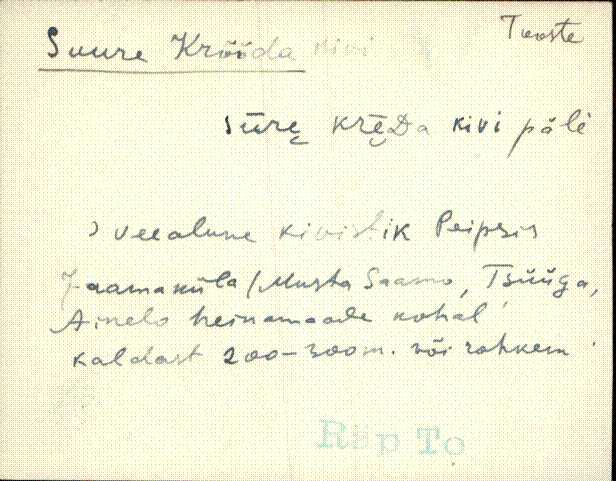 Tooste
Suure Krõõda kivi
sūrę krēDa kivi pǟle
veealune kivistik Peipsis
Jaamaküla (Musta Saamo, Tsüüga,
Ainelo heinamaade kohal,
kaldast 200-300m. või rohkem.
Räp To